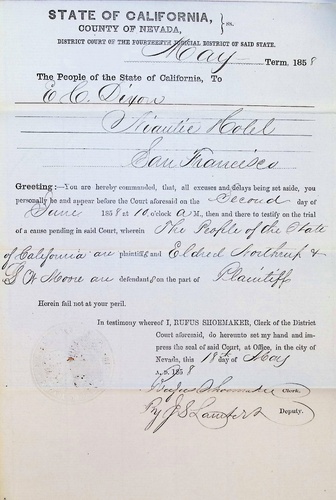 STATE OF CALIFORNIA, } ss.
COUNTY OF NEVADA,
DISTRICT COURT OF THE FOURTEENTH JUDICIAL DISTRICT OF SAID STATE.
May Term, 1858
The People of the State of California, To
E. C. Dixon
Niantic Hotel
San Francisco
Greeting:—You are hereby commanded, that, all excuses and delays being set aside, you
personally be and appear before the Court aforesaid on the Second day of
June 1858 at 10 o'clock A M., then and there to testify on the trial
of a cause pending in said Court, wherein The People of the State
of California are plaintiffs and Eldred Northrup &
Moore are defendants on the part of Plaintiff
Herein fail not at your peril.
In testimony whereof I, RUFUS SHOEMAKER, Clerk of the District
Court aforesaid, do hereunto set my hand and
impress the seal of said Court, at Office, in the city of
Nevada, this 18th day of May
A. D. 1858
Rufus Shoemaker Clerk.
By J S Lambert Deputy.